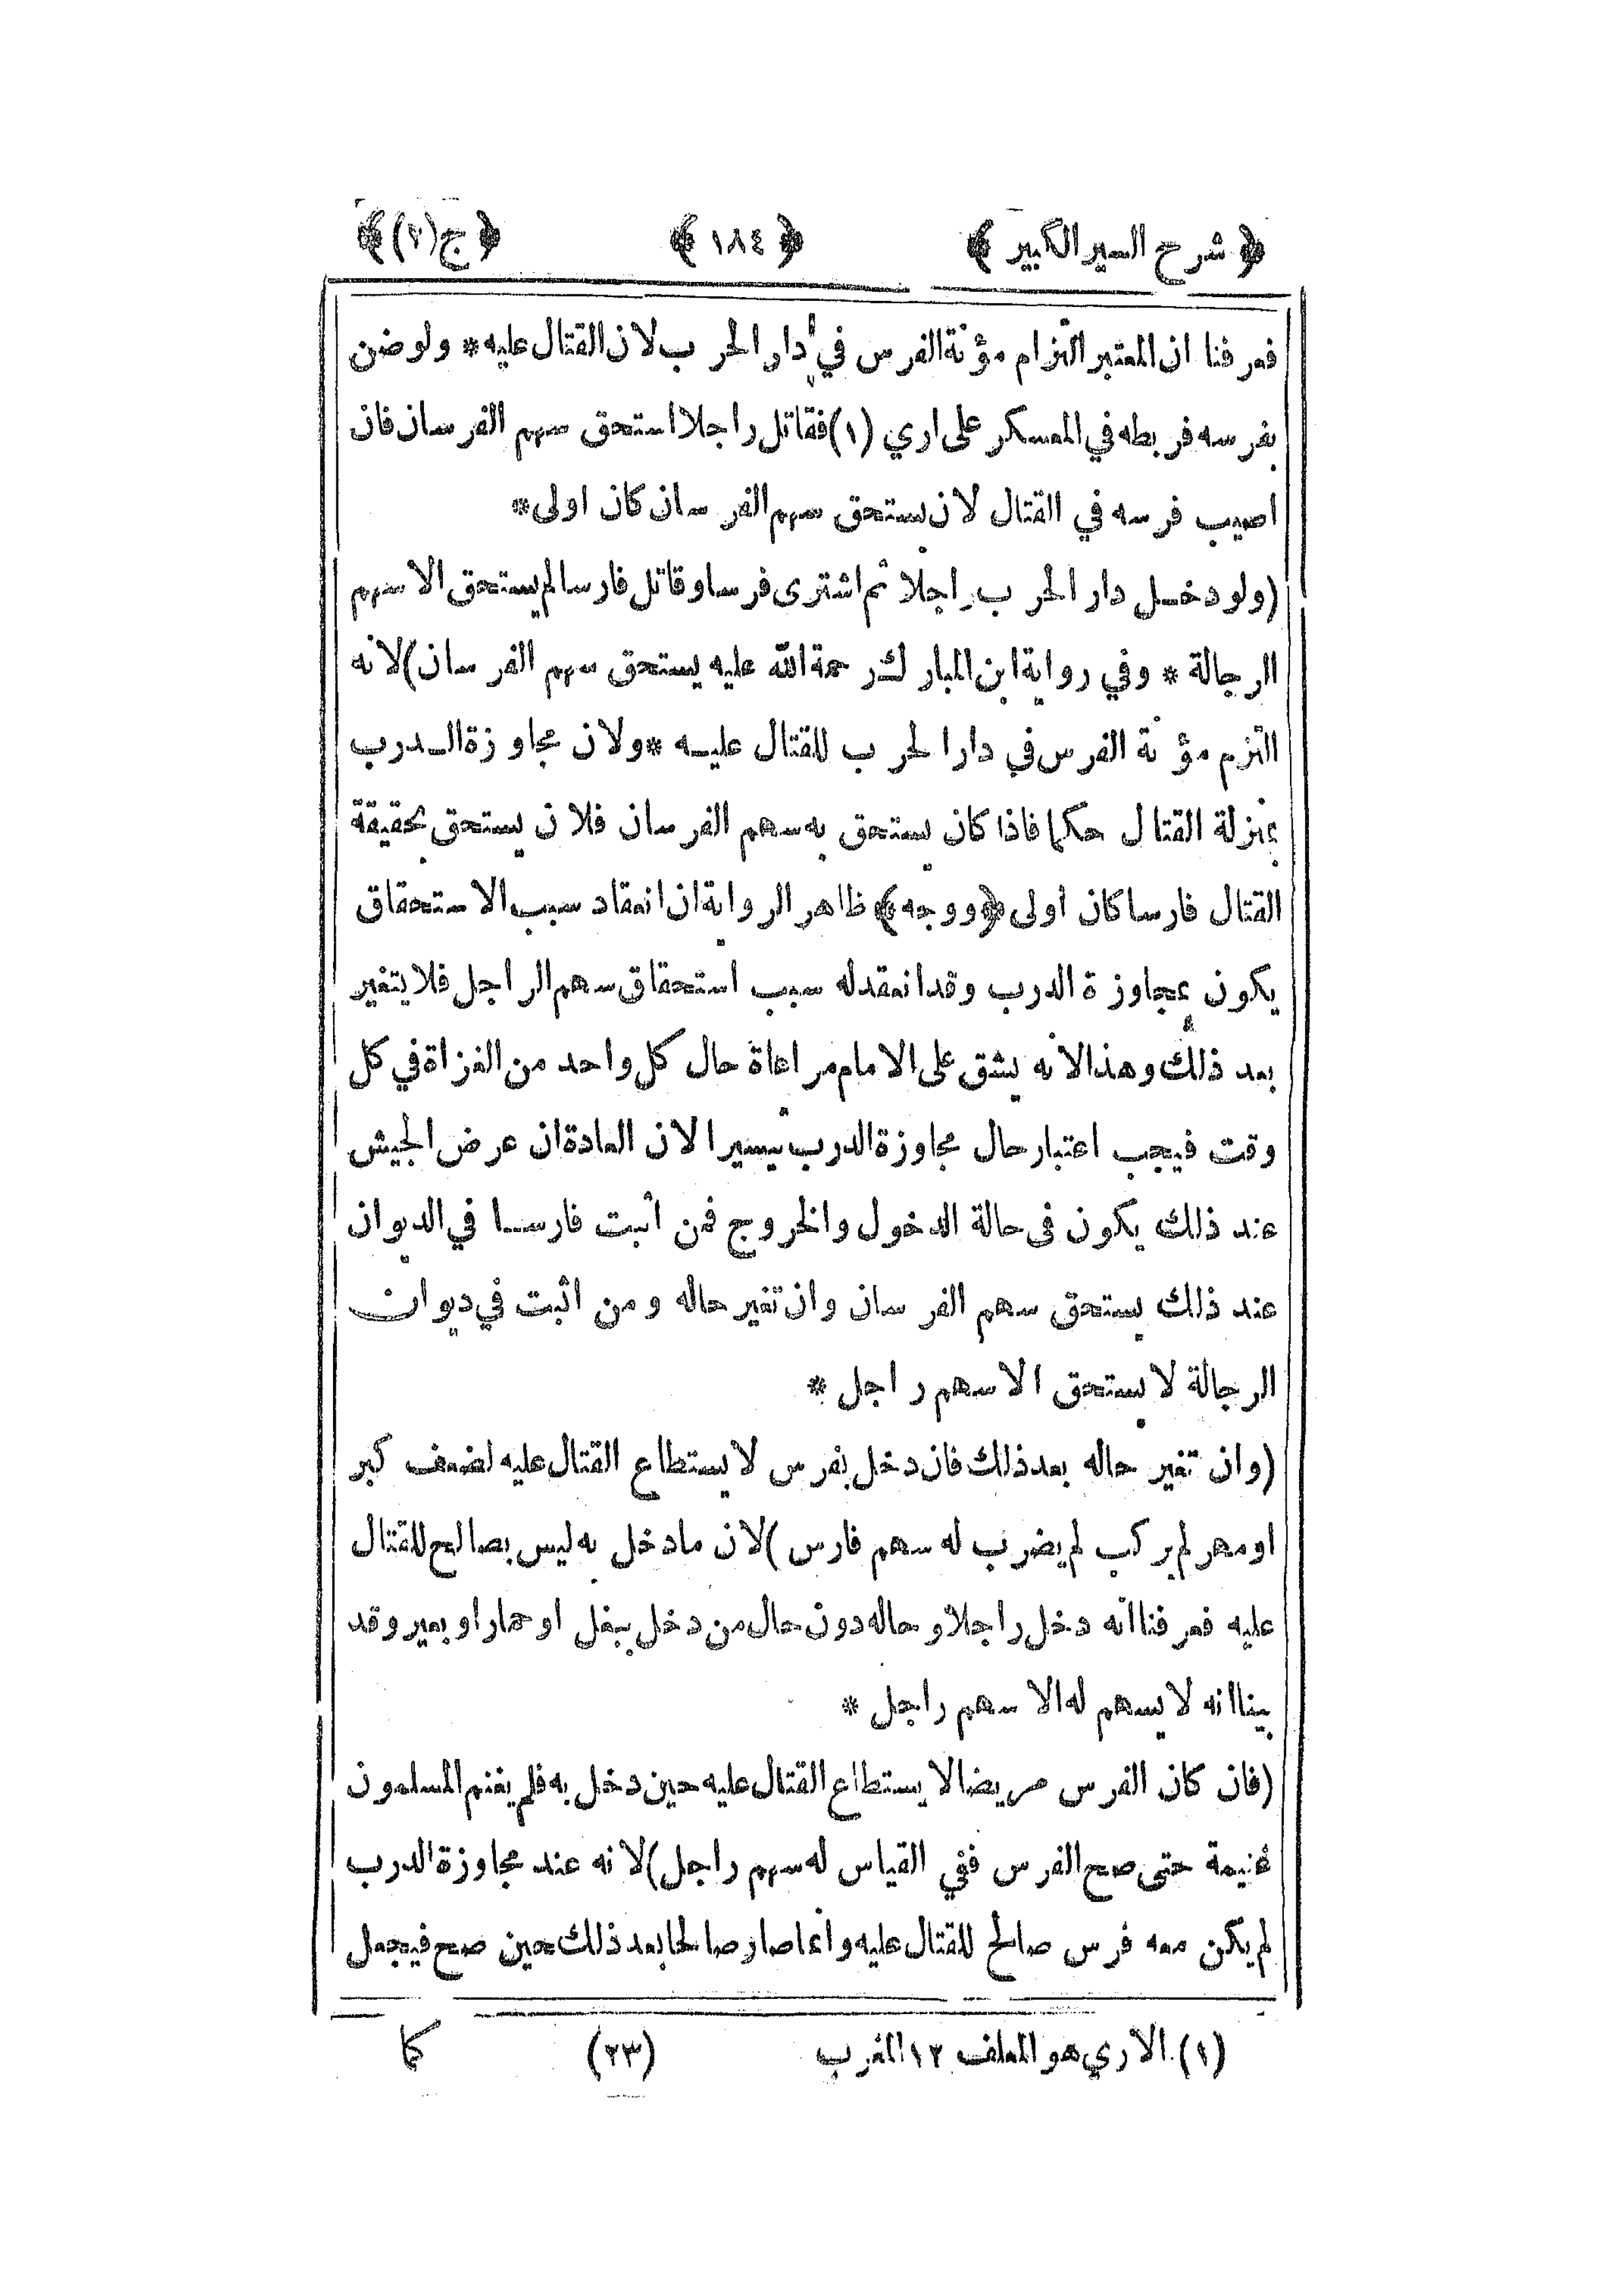 ﴿ شرح السير الكبير ﴾ ﴿ ١٨٤ ﴾ ﴿ ج (٢) ﴾
فعرفنا ان المعتبر التزام مؤنة الفرس في دار الحرب لان القتال عليه * ولو ضن
بفرسه فربطه في المعسكر على اري (١) فقاتل راجلا استحق سهم الفرسان فان
اصيب فرسه في القتال لان يستحق سهم الفرسان كان اولى *
(ولو دخل دار الحرب راجلا ثم اشترى فرسا وقاتل فارسا لم يستحق الا سهم
الرجالة * وفي رواية ابن المبارك رحمة الله عليه يستحق سهم الفرسان) لانه
التزم مؤنة الفرس في دار الحرب للقتال عليه * ولان مجاوزة الدرب
بمنزلة القتال حكما فاذا كان يستحق به سهم الفرسان فلان يستحق بحقيقة
القتال فارسا كان اولى ﴿ ووجه ﴾ ظاهر الرواية ان انعقاد سبب الاستحقاق
يكون بمجاوزة الدرب وقد انعقد له سبب استحقاق سهم الراجل فلا يتغير
بعد ذلك وهذا لانه يشق على الامام مراعاة حال كل واحد من الغزاة في كل
وقت فيجب اعتبار حال مجاوزة الدرب تيسيرا لان العادة ان عرض الجيش
عند ذلك يكون في حالة الدخول والخروج فمن اثبت فارسا في الديوان
عند ذلك يستحق سهم الفرسان وان تغير حاله ومن اثبت في ديوان
الرجالة لا يستحق الا سهم راجل *
(وان تغير حاله بعد ذلك فان دخل بفرس لا يستطاع القتال عليه لضعف كبر
او مهر لم يركب لم يضرب له سهم فارس) لان ما دخل به ليس بصالح للقتال
عليه فعرفنا انه دخل راجلا وحاله دون حال من دخل ببغل او حمار او بعير وقد
بينا انه لا يسهم له الا سهم راجل *
(فان كان الفرس مريضا لا يستطاع القتال عليه حين دخل به فلم يغنم المسلمون
غنيمة حتى صح الفرس ففي القياس له سهم راجل) لانه عند مجاوزة الدرب
لم يكن معه فرس صالح للقتال عليه وانما صار صالحا بعد ذلك حين صح فيجعل
(١) الاري هو المعلف ١٢ المغرب (٢٣) كما